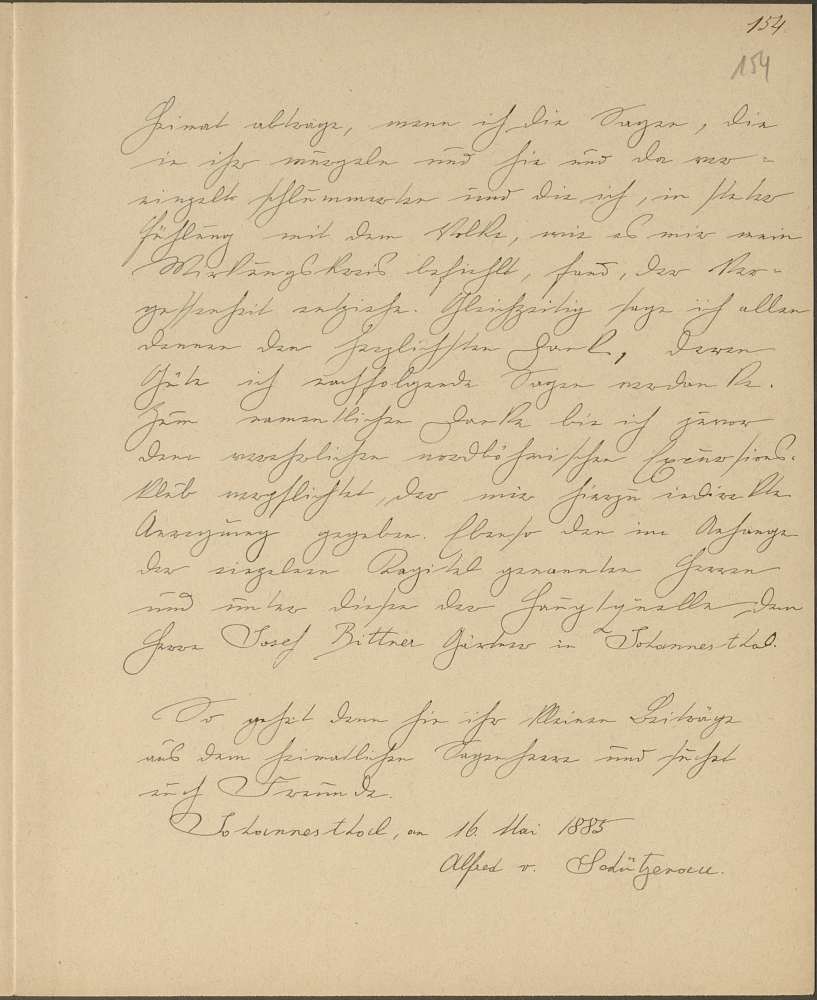 154
154
Heimat abtrage, wenn ich die Sagen, die
in ihr wurzeln und hie und da ver=
einzelt schlummerten und die ich, in steter
Fühlung mit dem Volke, wie es mir mein
Wirkungskreis befiehlt, fand, der Ver=
gessenheit entziehe. Gleichzeitig sage ich allen
dennen den herzlichsten Dank, deren
Güte ich nachfolgende Sagen verdanke.
Zum namentlichen Danke bin ich zuvor
dem verehrlichen nordböhmischen Excursions-
klub verpflichtet, der mir hierzu indirekte
Anregung gegeben. Ebenso den im Anhange
der einzelnen Kapitel genannten Herren
und unter diesen der Hauptquelle dem
Herrn Josef Bittner Gärtner in Johannesthal.
So gehet denn hin ihr kleinen Beiträge
aus dem heimatlichen Sagenheere und suchet
euch Freunde.
Johannesthal, am 16. Mai 1885
Alfred v. Schützenau.